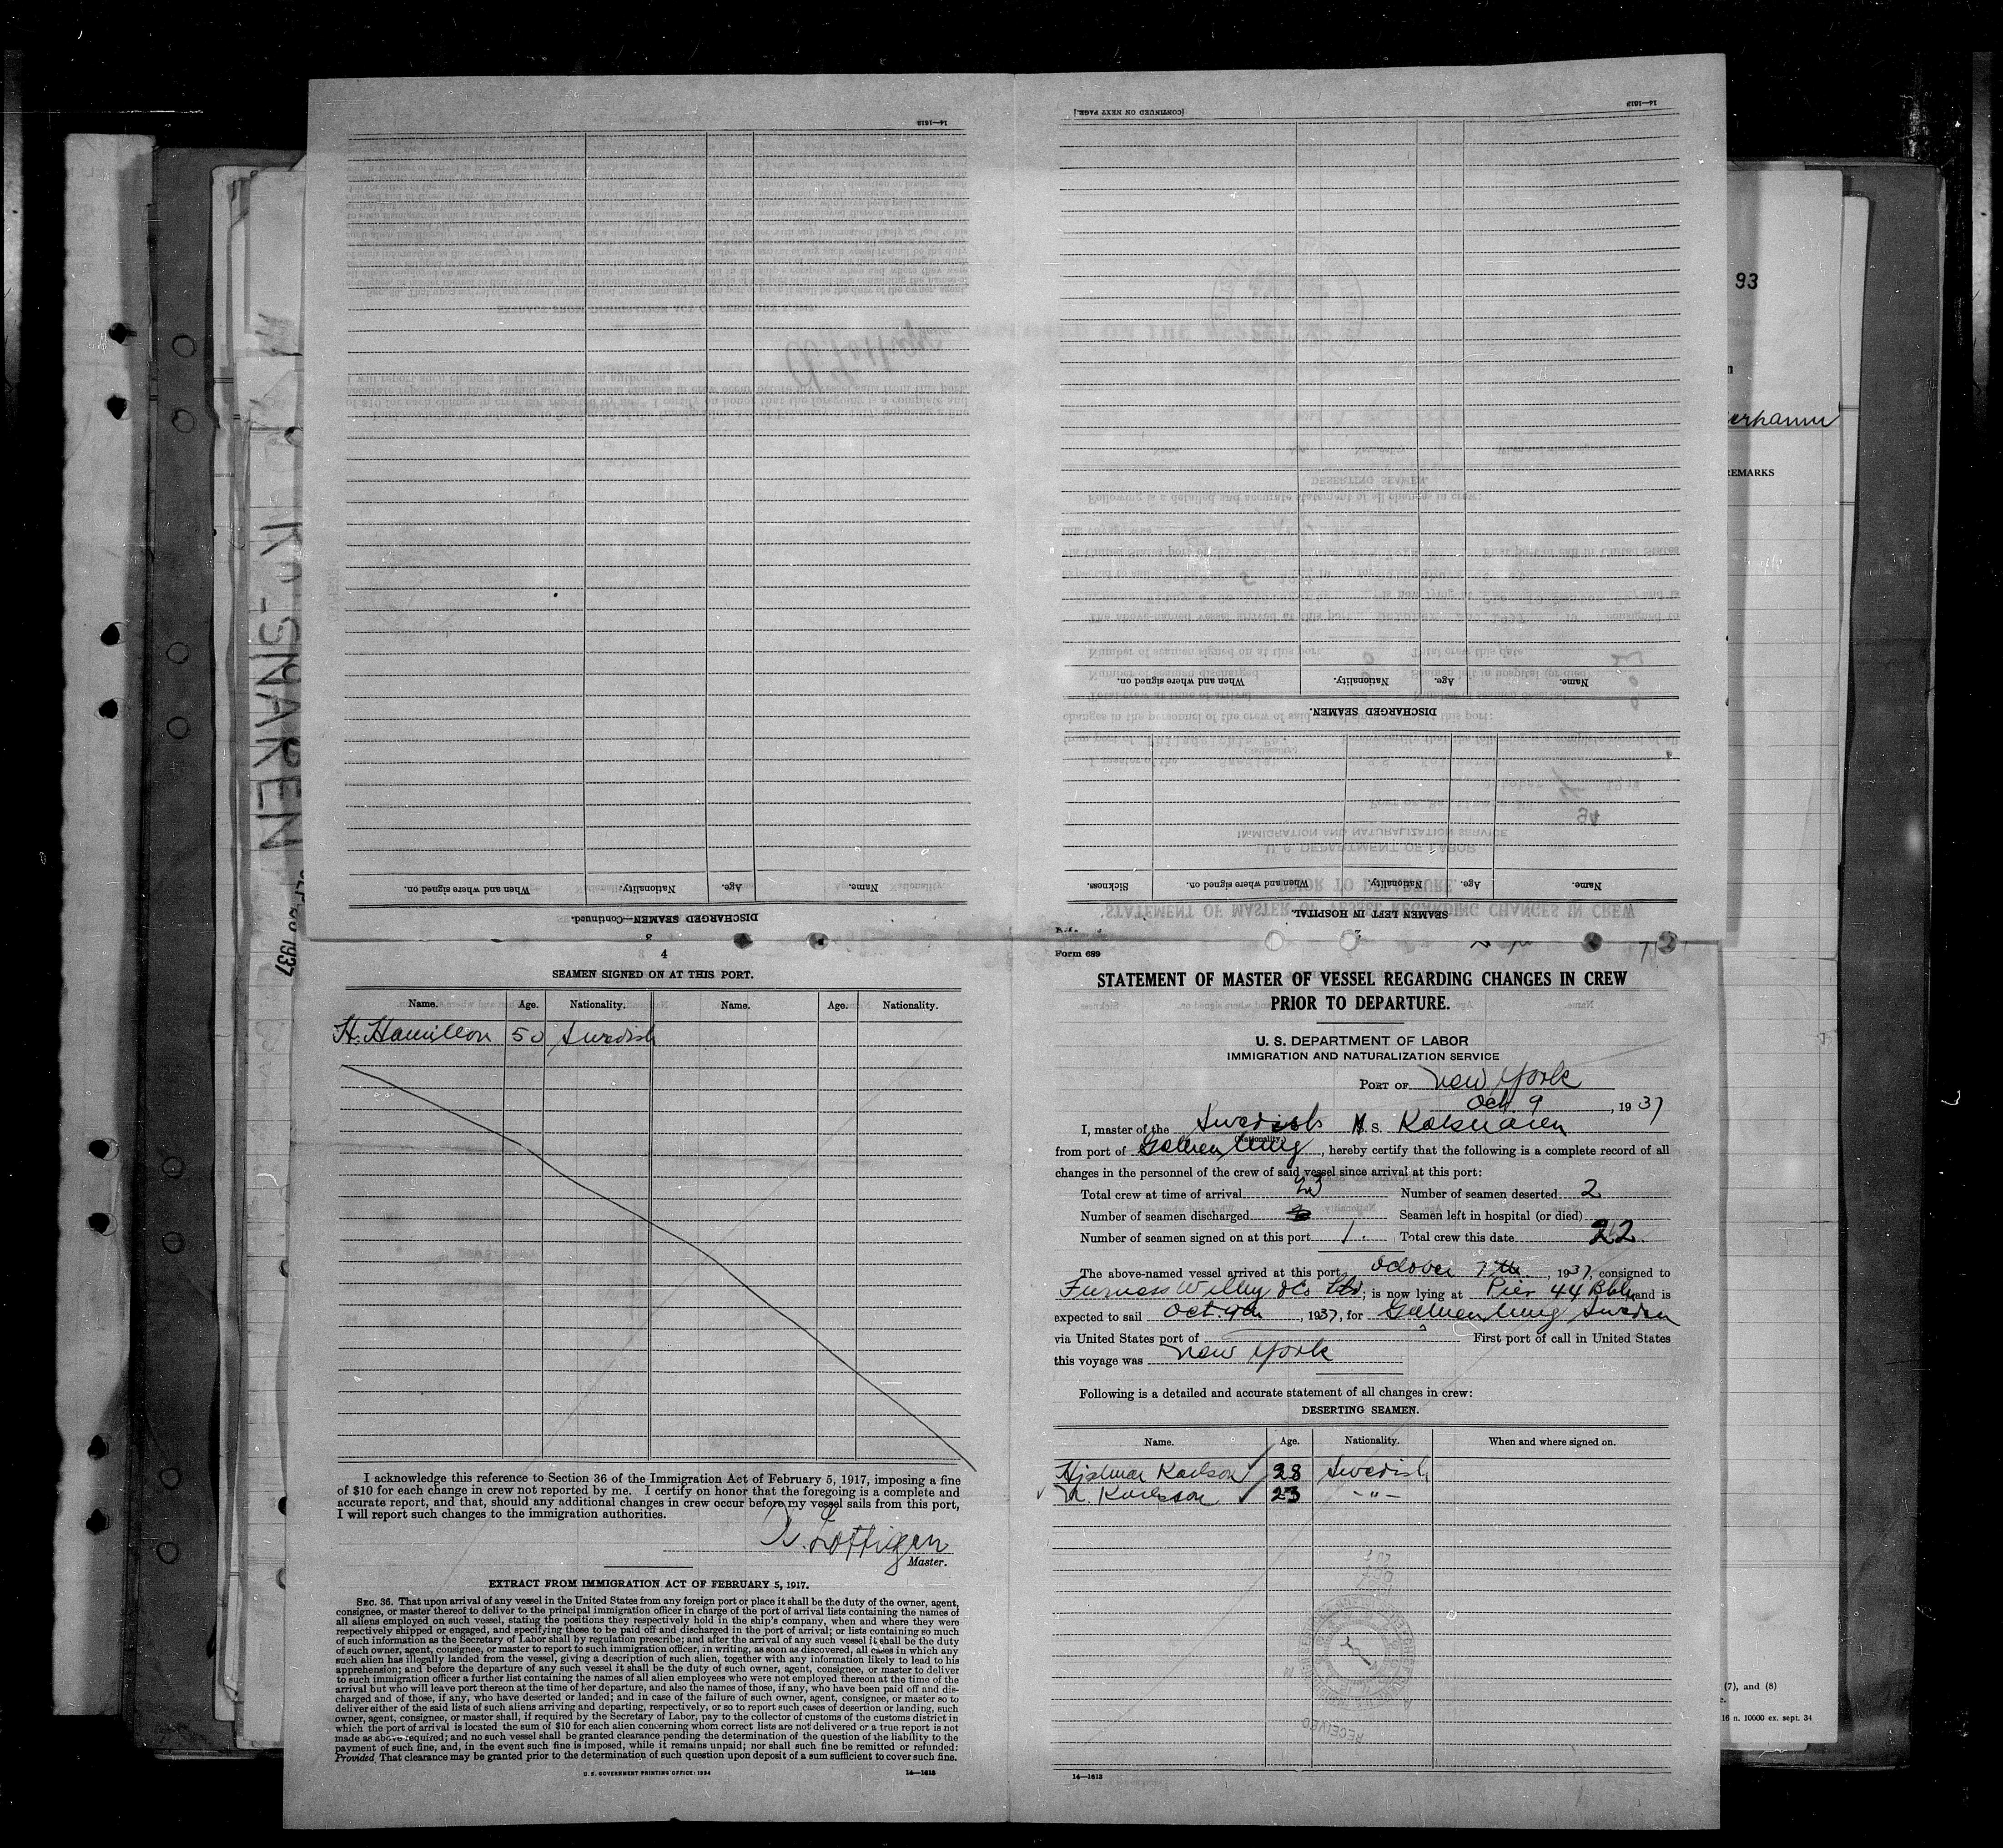 14—1613
[CONTINUED ON NEXT PAGE.]
14—1613
93
REMARKS
DISCHARGED SEAMEN.
Name. Age. Nationality. When and where signed on.
SEAMEN LEFT IN HOSPITAL
Name. Age. Nationality. When and where signed on. Sickness.
2
DISCHARGED SEAMEN—Continued.
Name. Age. Nationality. When and where signed on.
3
SNAREN
1937
4
SEAMEN SIGNED ON AT THIS PORT.
Name. Age. Nationality. Name. Age. Nationality.
H. Hamilton 50 Swedish
I acknowledge this reference to Section 36 of the Immigration Act of February 5, 1917, imposing a fine
of $10 for each change in crew not reported by me. I certify on honor that the foregoing is a complete and
accurate report, and that, should any additional changes in crew occur before my vessel sails from this port,
I will report such changes to the immigration authorities.
Master.
EXTRACT FROM IMMIGRATION ACT OF FEBRUARY 5, 1917.
SEC. 36. That upon arrival of any vessel in the United States from any foreign port or place it shall be the duty of the owner, agent,
consignee, or master thereof to deliver to the principal immigration officer in charge of the port of arrival lists containing the names of
all aliens employed on such vessel, stating the positions they respectively hold in the ship's company, when and where they were
respectively shipped or engaged, and specifying those to be paid off and discharged in the port of arrival; or lists containing so much
of such information as the Secretary of Labor shall by regulation prescribe; and after the arrival of any such vessel it shall be the duty
of such owner, agent, consignee, or master to report to such immigration officer, in writing, as soon as discovered, all cases in which any
such alien has illegally landed from the vessel, giving a description of such alien, together with any information likely to lead to his
apprehension; and before the departure of any such vessel it shall be the duty of such owner, agent, consignee, or master to deliver
to such immigration officer a further list containing the names of all alien employees who were not employed thereon at the time of the
arrival but who will leave port thereon at the time of her departure, and also the names of those, if any, who have been paid off and dis-
charged and of those, if any, who have deserted or landed; and in case of the failure of such owner, agent, consignee, or master so to
deliver either of the said lists of such aliens arriving and departing, respectively, or so to report such cases of desertion or landing, such
owner, agent, consignee, or master shall, if required by the Secretary of Labor, pay to the collector of customs of the customs district in
which the port of arrival is located the sum of $10 for each alien concerning whom correct lists are not delivered or a true report is not
made as above required; and no such vessel shall be granted clearance pending the determination of the question of the liability to the
payment of such fine, and, in the event such fine is imposed, while it remains unpaid; nor shall such fine be remitted or refunded:
Provided, That clearance may be granted prior to the determination of such question upon deposit of a sum sufficient to cover such fine.
U. S. GOVERNMENT PRINTING OFFICE: 1934 14—1613
Form 689
STATEMENT OF MASTER OF VESSEL REGARDING CHANGES IN CREW
PRIOR TO DEPARTURE.
U. S. DEPARTMENT OF LABOR
IMMIGRATION AND NATURALIZATION SERVICE
PORT OF New York
Oct. 9, 1937
I, master of the Swedish M S. Kolsnaren
(Nationality.)
from port of Gothenburg, hereby certify that the following is a complete record of all
changes in the personnel of the crew of said vessel since arrival at this port:
Total crew at time of arrival 23 Number of seamen deserted 2
Number of seamen discharged Seamen left in hospital (or died)
Number of seamen signed on at this port 1 Total crew this date 22
The above-named vessel arrived at this port October 7th, 1937, consigned to
Furness Withy & Co Ltd; is now lying at Pier 44 Bklyn and is
expected to sail Oct 9th, 1937, for Gothenburg Sweden
via United States port of First port of call in United States
this voyage was New York
Following is a detailed and accurate statement of all changes in crew:
DESERTING SEAMEN.
Name. Age. Nationality. When and where signed on.
Hjalmar Karlson 28 Swedish
Karlsson 23 – " –
RECEIVED
14—1613
(7), and (8)
16 n. 10000 ex. sept. 34